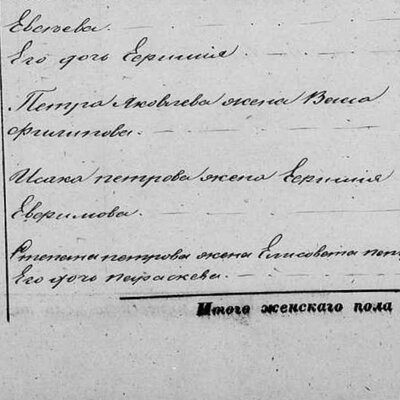 Евсѣева.
Его дочь Ефимия.
Петра Яковлева жена Васса
Филипова.
Исака петрова жена Ефимия
Евфимова.
Степана петрова жена Елисовета пет
Его дочь параскева.
Итого женскаго пола